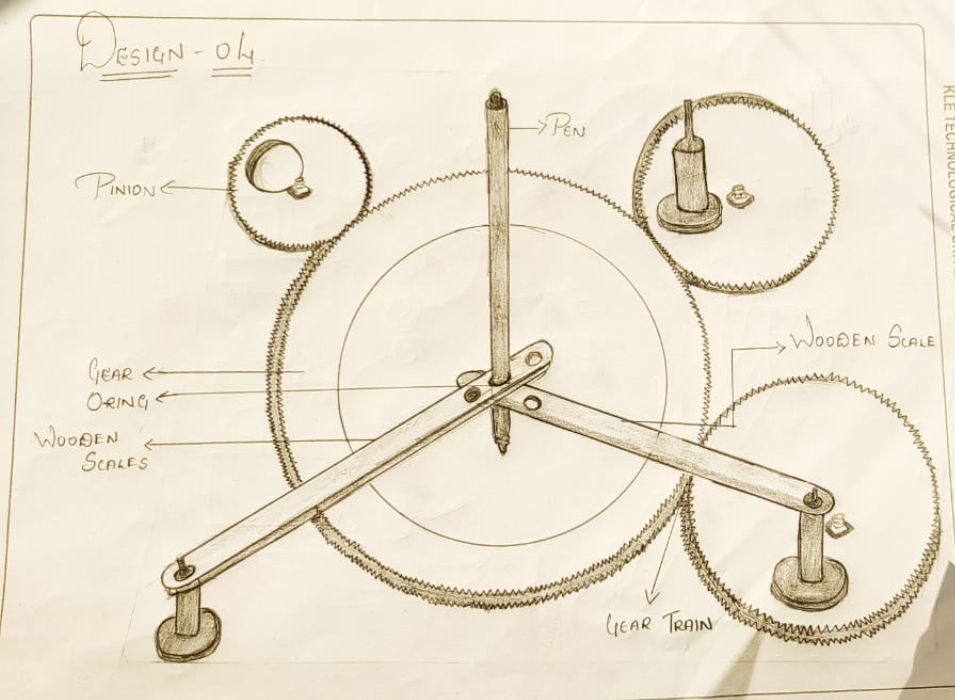 DESIGN - 04
PEN
PINION
WOODEN SCALE
GEAR
ORING
WOODEN
SCALES
GEAR TRAIN
KLE TECHNOLOGICAL